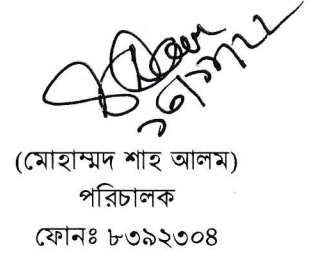 (মোহাম্মদ শাহ আলম)
পরিচালক
ফোনঃ ৮৩৯২৩০৪